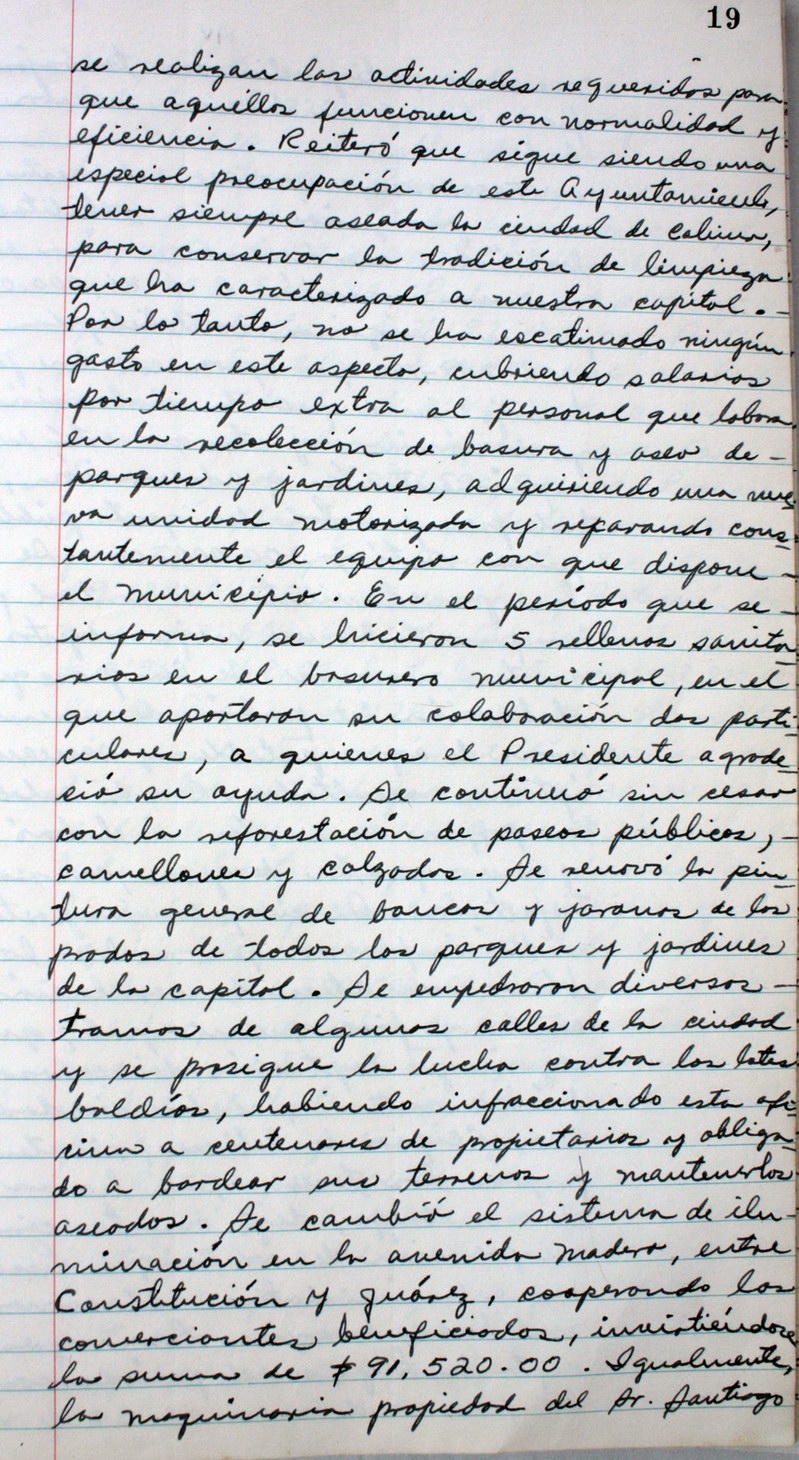 19
se realizan las actividades requeridas para
que aquéllos funcionen con normalidad y
eficiencia. Reiteró que sigue siendo una
especial preocupación de este Ayuntamiento,
tener siempre aseada la ciudad de Colima,
para conservar la tradición de limpieza
que ha caracterizado a nuestra capital.-
Por lo tanto, no se ha escatimado ningún
gasto en este aspecto, cubriendo salarios
por tiempo extra al personal que labora
en la recolección de basura y aseo de-
parques y jardines, adquiriendo una nue-
va unidad motorizada y reparando cons-
tantemente el equipo con que dispone-
el municipio. En el período que se-
informa, se hicieron 5 rellenos sanita-
rios en el basurero municipal, en el
que aportaron su colaboración dos parti-
culares, a quienes el Presidente agrade-
ció su ayuda. Se continuó sin cesar
con la reforestación de paseos públicos,-
camellones y calzadas. Se renovó la pin-
tura general de bancas y jaranas de los
prados de todos los parques y jardines
de la capital. Se empedraron diversos-
tramos de algunas calles de la ciudad
y se prosigue la lucha contra los lotes
baldíos, habiendo infraccionado esta ofi-
cina a centenares de propietarios y obliga-
do a bardear sus terrenos y mantenerlos
aseados. Se cambió el sistema de ilu-
minación en la avenida Madero, entre
Constitución y Juárez, cooperando los
comerciantes beneficiados, invirtiéndose
la suma de $91,520.00. Igualmente,
la maquinaria propiedad del Sr. Santiago